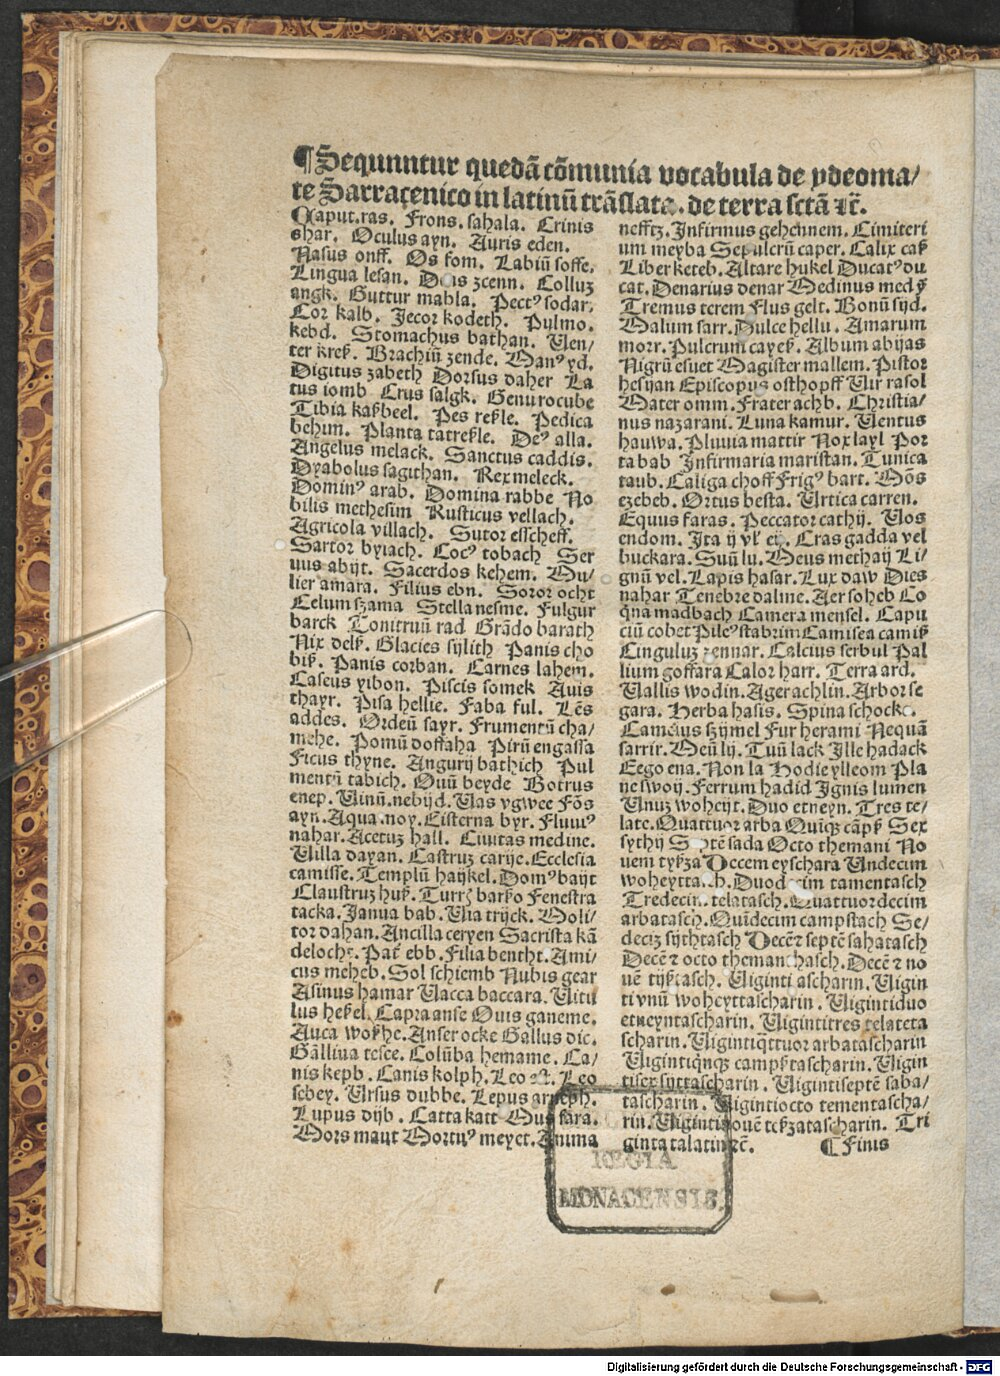 ¶ Sequnntur quedā cōmunia vocabula de ydeoma/
te Sarracenico in latinū trāslata. de terra sctā ⁊c̄.
Caput.ras. Frons.sahala. Crinis
shar. Oculus ayn. Auris eden.
Nasus onff. Os fom. Labiū soffe.
Lingua lesan. Dens zcenn. Colluz
angk. Guttur mabla. Pectꝰ sodar.
Cor kalb. Jecor kodeth. Pulmo.
kebd. Stomachus bathan. Ven/
ter kreß. Brachiū zende. Manꝰ yd.
Digitus zabeth Dorsus daher La
tus iomb Crus salgk. Genu rocube
Tibia kaßbeel. Pes rekle. Pedica
behun. Planta tatrekle. Deꝰ alla.
Angelus melack. Sanctus caddis.
Dyabolus sagithan. Rex meleck.
Dominꝰ arab. Domina rabbe No
bilis methesim Rusticus vellach.
Agricola villach. Sutor esscheff.
Sartor byiach. Cocꝰ tobach Ser
uus abijt. Sacerdos kehem. Mu/
lier amara. Filius ebn. Soror ocht
Celum szama Stella nesme. Fulgur
barck Tonitruū rad Grādo barath
Nix delk. Glacies sylith Panis cho
biß. Panis corban. Carnes lahem.
Caseus yibon. Piscis somek Auis
thayr. Pisa hellie. Faba ful. Lēs
addes. Ordeū sayr. Frumentū cha/
mehe. Pomū doffaha Pirū engassa
Ficus thyne. Angurij bathich Pul
mentū tabich. Ouū beyde Botrus
enep. Vinū.nebijd. Vas ygwee Fōs
ayn. Aqua.moy. Cisterna byr. Fluuiꝰ
nahar. Acetuz hall. Ciuitas medine.
Villa dayan. Castruz carije. Ecclesia
camisse. Templū haykel. Domꝰ bayt
Claustruz huß. Turr barko Fenestra
tacka. Janua bab. Via trijck. Moli/
tor dahan. Ancilla ceryen Sacrista kā
deloche. Pat̄ ebb. Filia bentht. Ami/
cus meheb. Sol schiemb Nubis gear
Asinus hamar Vacca baccara. Vitu
lus hekel. Capra anse Ouis ganeme.
Auca wokhe. Anser ocke Gallus dic.
Gallina tesce. Colūba hemame. Ca/
nis kepb. Canis kolph. Leo Leo
sebey. Vrsus dubbe. Lepus
Lupus dijb. Catta katt Mus fara.
Mors maut Mortuꝰ meyet. Anima
nefftz. Infirmus gehennem. Cimiteri
um meyba Sepulcrū caper. Calix caß
Liber keteb. Altare hukel Ducatꝰ du
cat. Denarius denar Medinus med
Tremus terem Flus gelt. Bonū sijd.
Malum sarr. Dulce hellu. Amarum
morr. Pulcrum cayeß. Album abijas
Nigrū esuet Magister mallem. Pistor
hesijan Episcopus osthopff Vir rasol
Mater omm. Frater achb. Christia/
nus nazarani. Luna kamur. Ventus
hauwa. Pluuia mattir Nox layl Por
ta bab Infirmaria maristan. Tunica
taub. Caliga choff Frigꝰ bart. Mōs
czebeb. Ortus besta. Vrtica carren.
Equus faras. Peccator cathij. Vos
endom. Ita ij vl̄ Cras gadda vel
buckara. Suū lu. Meus methaij Li/
gnū vel. Lapis hasar. Lux daw Dies
nahar Tenebre dalme. Aer soheb Co
q̄na madbach Camera mensel. Capu
ciū cobet Pileꝰ stabzim Camisea camiß
Cinguluz zennar. Calcius serbul Pal
lium goffara Calor harr. Terra ard.
Vallis wodin. Ager achlin. Arbor se
gara. Herba hasis. Spina schocke.
Camelus szymel Fur herami Nequā
sarrir. Meū lij. Tuū lack Ille hadack
Eego ena. Non la Hodie ylleom Pla
ne swoij. Ferrum hadid Ignis lumen
Vnuz woheyt. Duo etneyn. Tres te/
late. Quattuor arba Quīq̄ cāpß Sex
sythij Septē sada Octo themani No
uem tyßza Decem eyschara Undecim
woheyttasch. Duodecim tamentasch
Tredecim telatasch. Quattuordecim
arbatasch. Quīdecim campstach Se/
deciz sythtasch Decē⁊ septē sahatasch
Decē ⁊ octo themanthasch. Decē ⁊ no
uē tijßtasch. Viginti ascharin. Vigin
ti vnū woheyttascharin. Viginti duo
etneyntascharin. Vigintitres telateta
scharin. Vigintiq̄ttuor arbatascharin
Vigintiq̄nq̄ campßtascharin. Vigin
tisex syttascharin. Vigintiseptē saba/
tascharin. Vigintiocto tementascha/
rin. Vigintinouē teßzatascharin. Tri
ginta talatin ⁊c̄. ¶ Finis
REGIA
MONACENSIS.
Digitalisierung gefördert durch die Deutsche Forschungsgemeinschaft - DFG